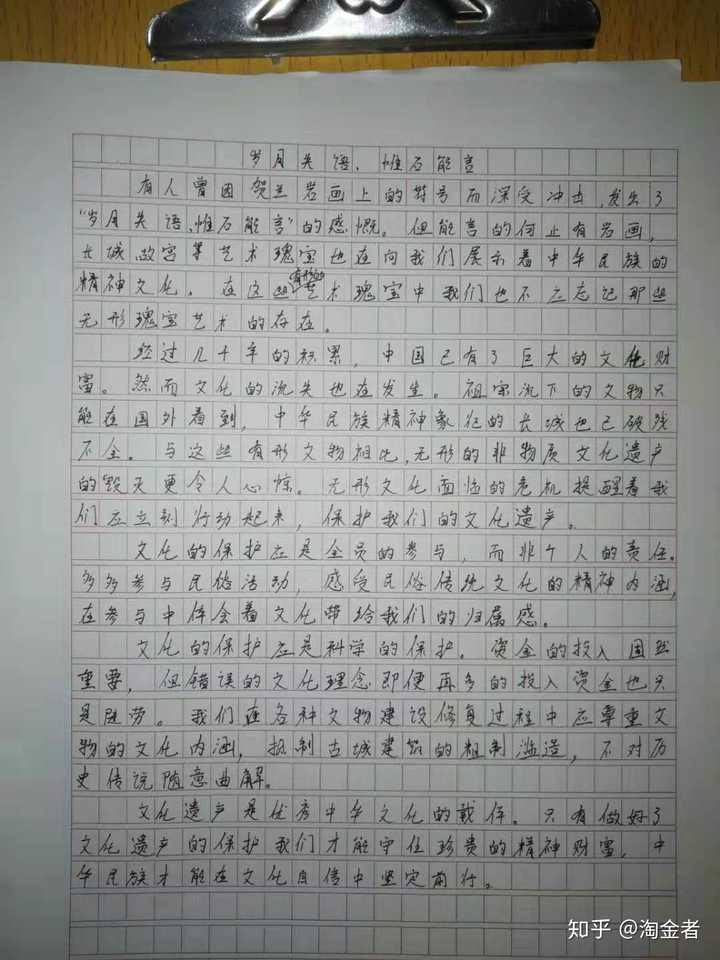 岁月失语，惟石能言
有人曾因贺兰岩画上的符号而深受冲击，发出了
“岁月失语，惟石能言”的感慨。但能言的何止有岩画，
长城、故宫等艺术瑰宝也在向我们展示着中华民族的
精神文化。在这些有形的艺术瑰宝中我们也不应忘记那些
无形瑰宝艺术的存在。
经过几千年的积累，中国已有了巨大的文化财
富。然而文化的流失也在发生。祖宗流下的文物只
能在国外看到，中华民族精神象征的长城也已破残
不全。与这些有形文物相比，无形的非物质文化遗产
的毁灭更令人心惊。无形文化面临的危机提醒着我
们应立刻行动起来，保护我们的文化遗产。
文化的保护应是全员的参与，而非个人的责任。
多多参与民俗活动，感受民俗传统文化的精神内涵，
在参与中体会着文化带给我们的归属感。
文化的保护应是科学的保护。资金的投入固然
重要，但错误的文化理念即便再多的投入资金也只
是徒劳。我们在各种文物建设修复过程中应尊重文
物的文化内涵，抵制古城建筑的粗制滥造，不对历
史传说随意曲解。
文化遗产是优秀中华文化的载体。只有做好了
文化遗产的保护我们才能守住珍贵的精神财富，中
华民族才能在文化自信中坚定前行。
知乎 @淘金者